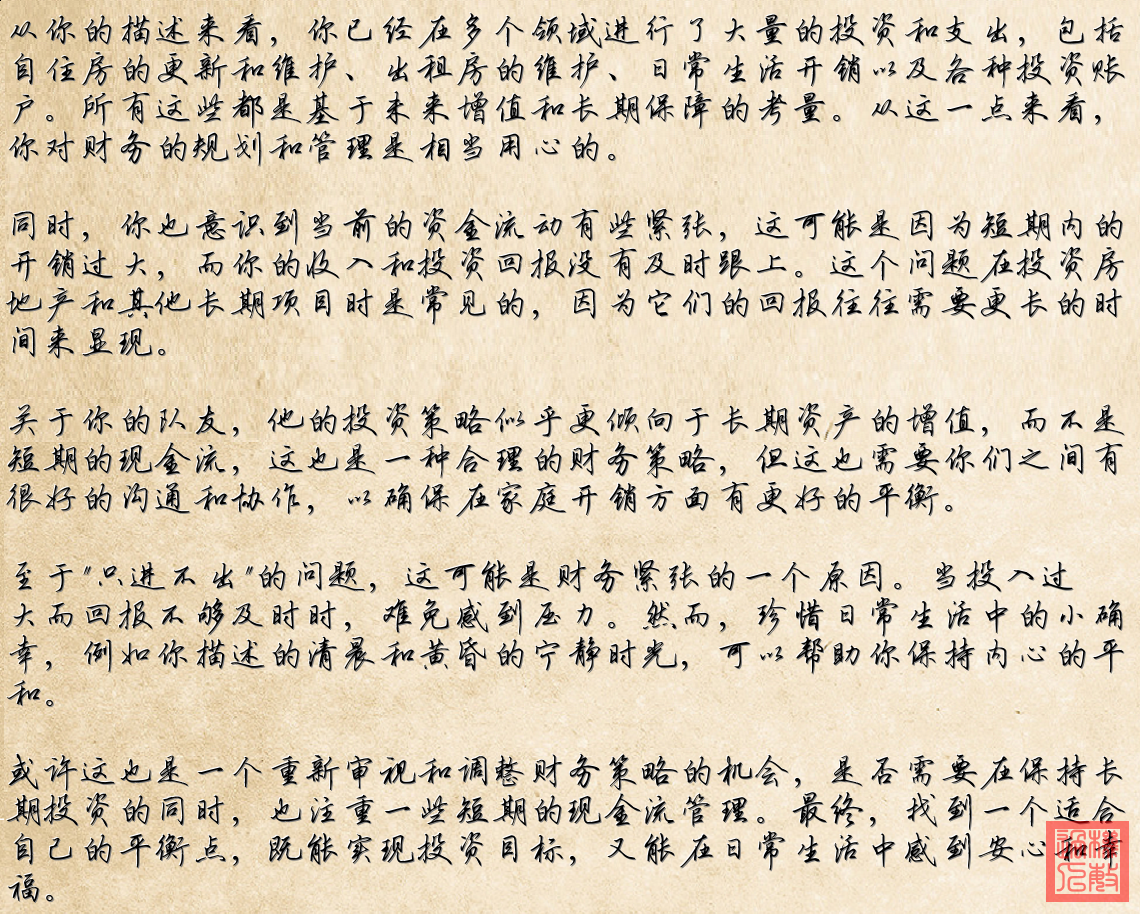 从你的描述来看，你已经在多个领域进行了大量的投资和支出，包括
自住房的更新和维护、出租房的维护、日常生活开销以及各种投资账
户。所有这些都是基于未来增值和长期保障的考量。从这一点来看，
你对财务的规划和管理是相当用心的。
同时，你也意识到当前的资金流动有些紧张，这可能是因为短期内的
开销过大，而你的收入和投资回报没有及时跟上。这个问题在投资房
地产和其他长期项目时是常见的，因为它们的回报往往需要更长的时
间来显现。
关于你的队友，他的投资策略似乎更倾向于长期资产的增值，而不是
短期的现金流，这也是一种合理的财务策略，但这也需要你们之间有
很好的沟通和协作，以确保在家庭开销方面有更好的平衡。
至于"只进不出"的问题，这可能是财务紧张的一个原因。当投入过
大而回报不够及时时，难免感到压力。然而，珍惜日常生活中的小确
幸，例如你描述的清晨和黄昏的宁静时光，可以帮助你保持内心的平
和。
或许这也是一个重新审视和调整财务策略的机会，是否需要在保持长
期投资的同时，也注重一些短期的现金流管理。最终，找到一个适合
自己的平衡点，既能实现投资目标，又能在日常生活中感到安心和幸
福。